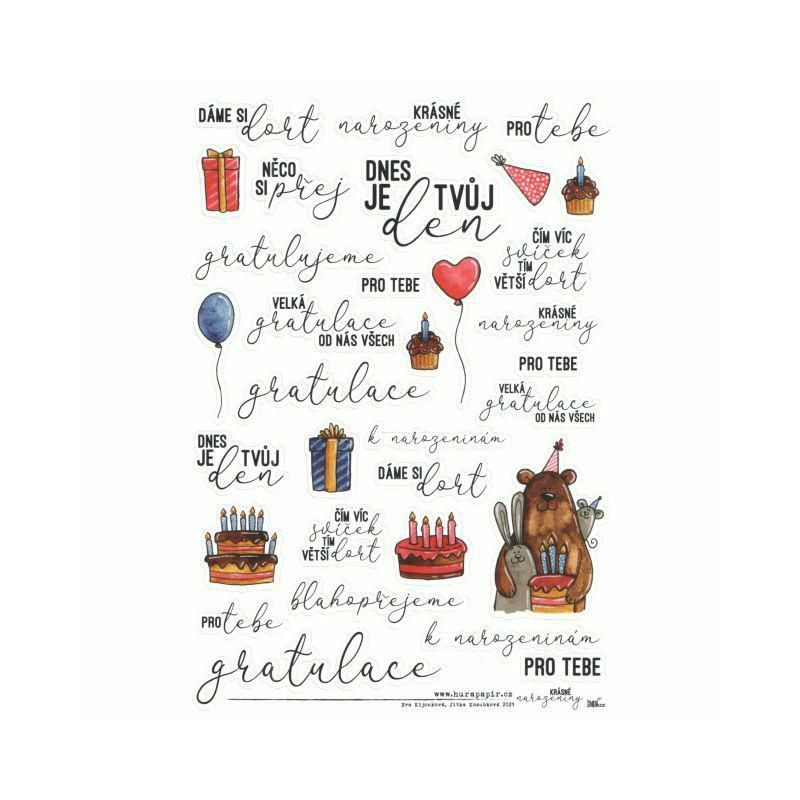 DÁME SI dort
KRÁSNÉ
narozeniny
PRO tebe
NĚCO
SI přej
DNES
JE TVŮJ
den
gratulujeme
ČÍM VÍC
svíček
TÍM
VĚTŠÍ dort
PRO TEBE
VELKÁ
gratulace
OD NÁS VŠECH
KRÁSNÉ
narozeniny
PRO TEBE
gratulace
VELKÁ
gratulace
OD NÁS VŠECH
DNES
JE TVŮJ
den
k narozeninám
DÁME SI dort
ČÍM VÍC
svíček
TÍM
VĚTŠÍ dort
blahopřejeme
PRO tebe
k narozeninám
gratulace
PRO TEBE
www.hurapapir.cz
KRÁSNÉ
narozeniny
Eva Kijonková, Jitka Kosubková 2021